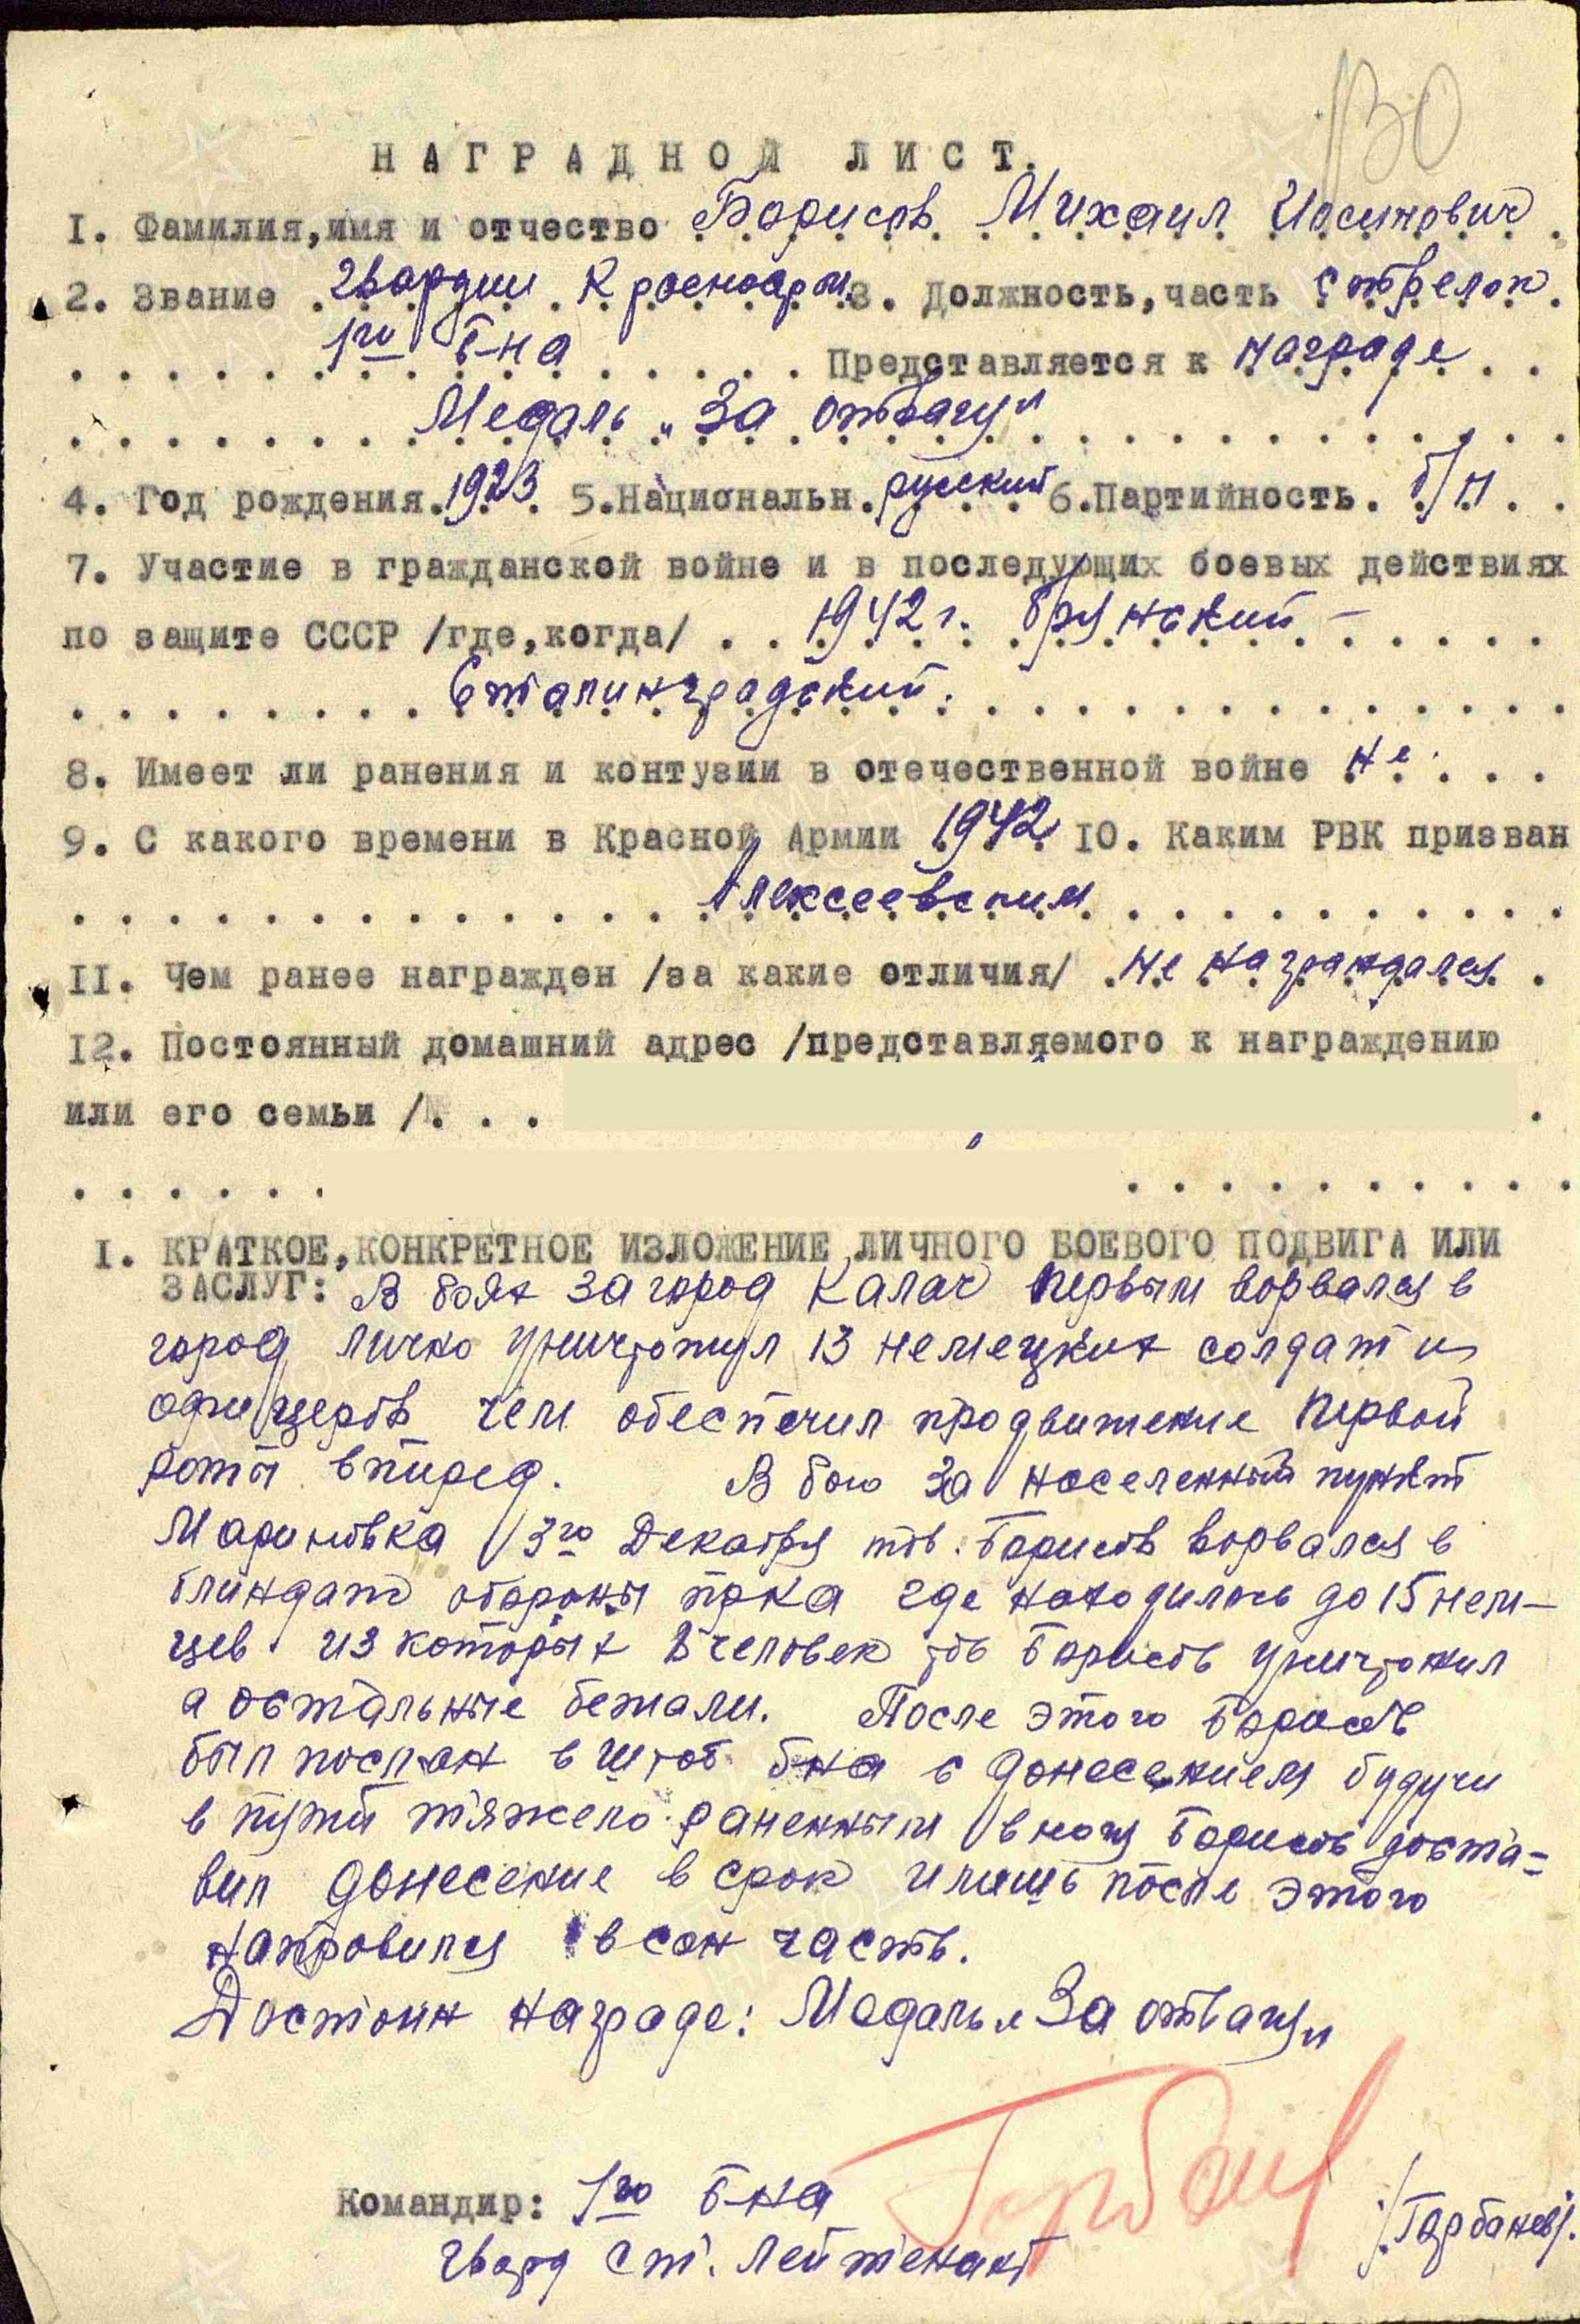 130
НАГРАДНОЙ ЛИСТ.
I. Фамилия,имя и отчество Борисов Михаил Иосипович
2. Звание гвардии Красноарм. 3. Должность,часть стрелок
1го б-на Представляется к награде
Медаль „За отвагу"
4. Год рождения. 1923 5.Национальн. русский 6.Партийность. б/п
7. Участие в гражданской войне и в последующих боевых действиях
по защите СССР /где,когда/ 1942 г. Брянский –
Сталинградский.
8. Имеет ли ранения и контузии в отечественной войне не
9. С какого времени в Красной Армии 1942 IO. Каким РВК призван
Алексеевским
II. Чем ранее награжден /за какие отличия/ не награждался
I2. Постоянный домашний адрес /представляемого к награждению
или его семьи /
I. КРАТКОЕ,КОНКРЕТНОЕ ИЗЛОЖЕНИЕ ЛИЧНОГО БОЕВОГО ПОДВИГА ИЛИ
ЗАСЛУГ: В боях за город Калач первым ворвался в
город лично уничтожил 13 немецких солдат и
офицеров чем обеспечил продвижение первой
роты вперед. В бою за населенный пункт
Мариновка 3го Декабря тов. Борисов ворвался в
блиндаж обороны пр-ка где находилось до 15 нем-
цев из которых 8 человек тов Борисов уничтожил
а остальные бежали. После этого Борисов
был послан в штаб б-на с донесением будучи
в пути тяжело раненным в ногу Борисов доста-
вил донесение в срок и лишь после этого
направился в сан часть.
Достоин награде: Медаль „За отвагу"
Командир: 1го б-на
гвард ст. лейтенант
/Горбанев/.